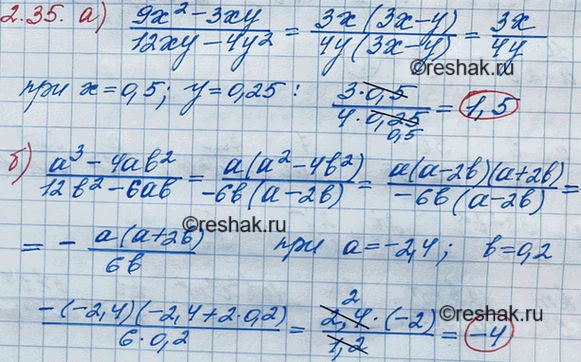 2.35. а) (9x² − 3xy)/(12xy − 4y²) = (3x(3x−y))/(4y(3x−y)) = 3x/4y
©reshak.ru
при x = 0,5; y = 0,25 : (3·0,5)/(4·0,25) = 1,5
0,5
©reshak.ru
б) (a³ − 4ab²)/(12b² − 6ab) = (a(a² − 4b²))/(−6b(a − 2b)) = (a(a−2b)(a+2b))/(−6b(a−2b)) =
©reshak.ru
= − (a(a+2b))/(6b) при a = −2,4; b = 0,2
(−(−2,4)(−2,4 + 2·0,2))/(6·0,2) = (2,4·(−2))/(1,2) = −4
2
©reshak.ru